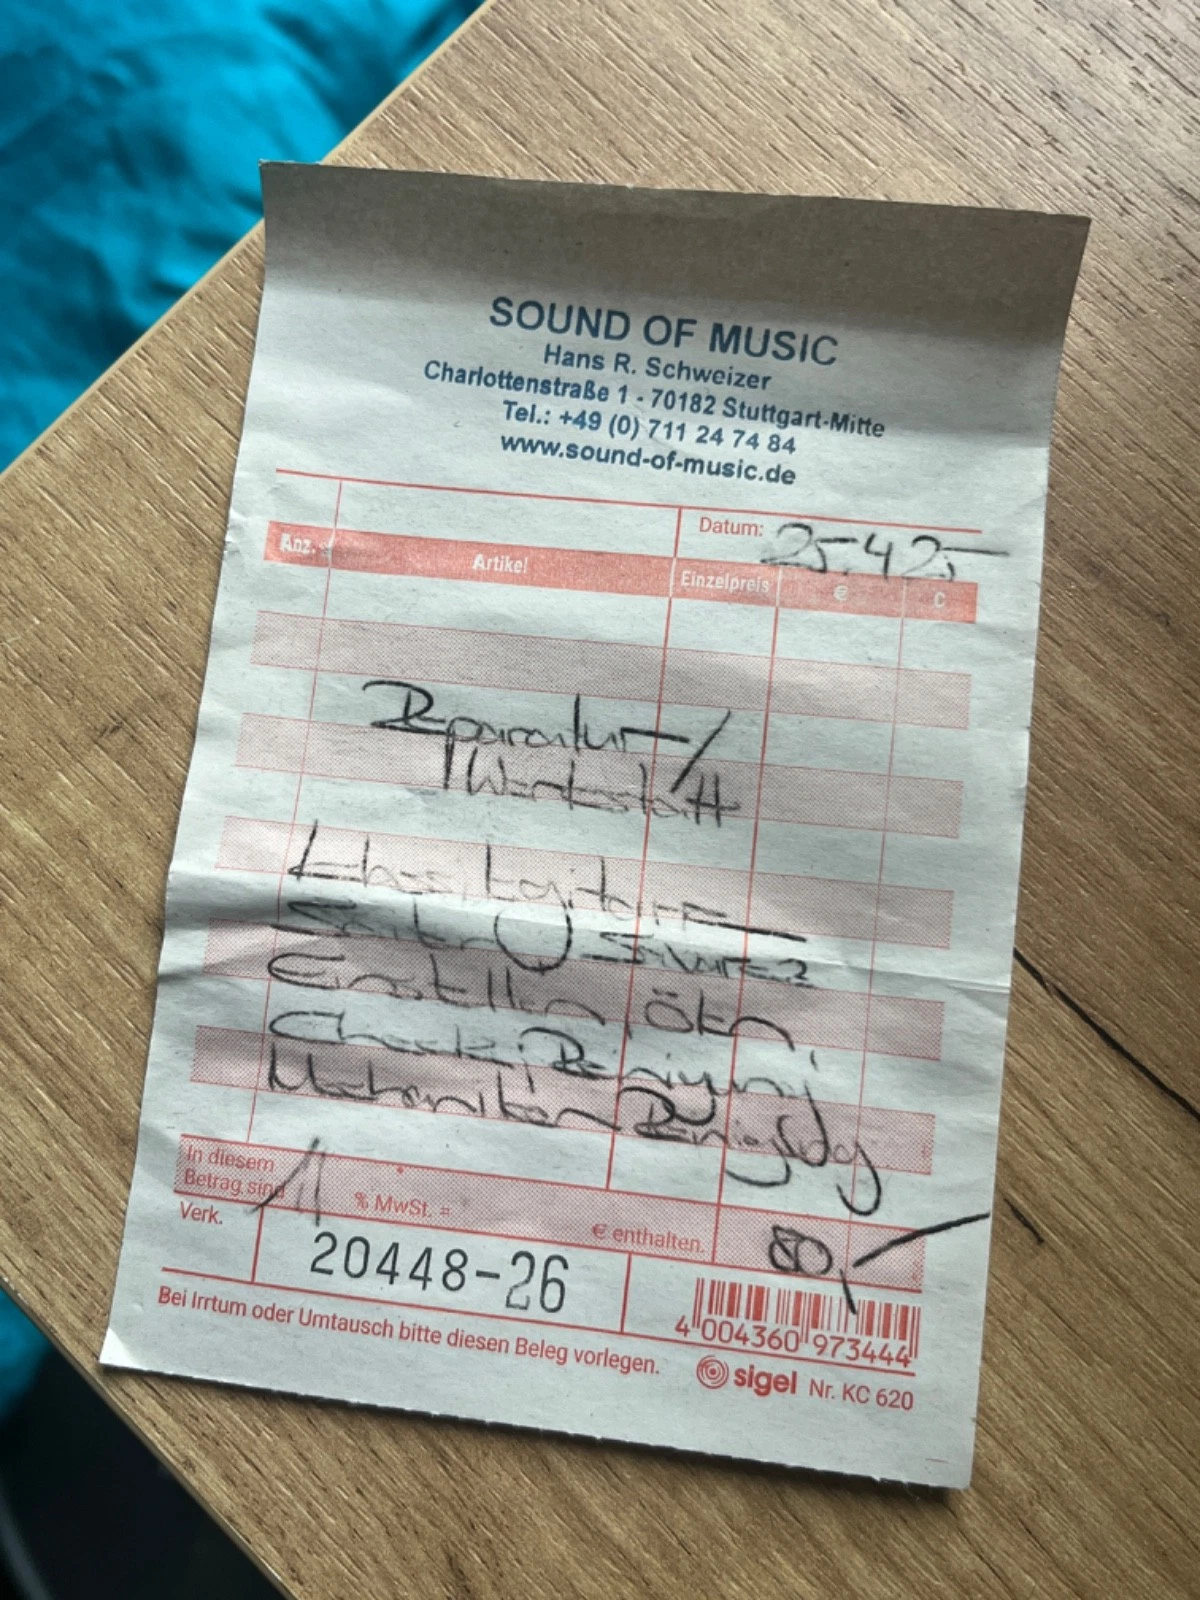 SOUND OF MUSIC
Hans R. Schweizer
Charlottenstraße 1 - 70182 Stuttgart-Mitte
Tel.: +49 (0) 711 24 74 84
www.sound-of-music.de
Datum: 25.4.25
Anz. Artikel Einzelpreis € C
Reparatur-/
Werkstatt
Einstellen, Ölen,
Check, Reinigung
Mechaniken
In diesem
Betrag sind % MwSt. = € enthalten. 80,-
Verk.
20448-26
4 004360 973444
Bei Irrtum oder Umtausch bitte diesen Beleg vorlegen.
sigel Nr. KC 620